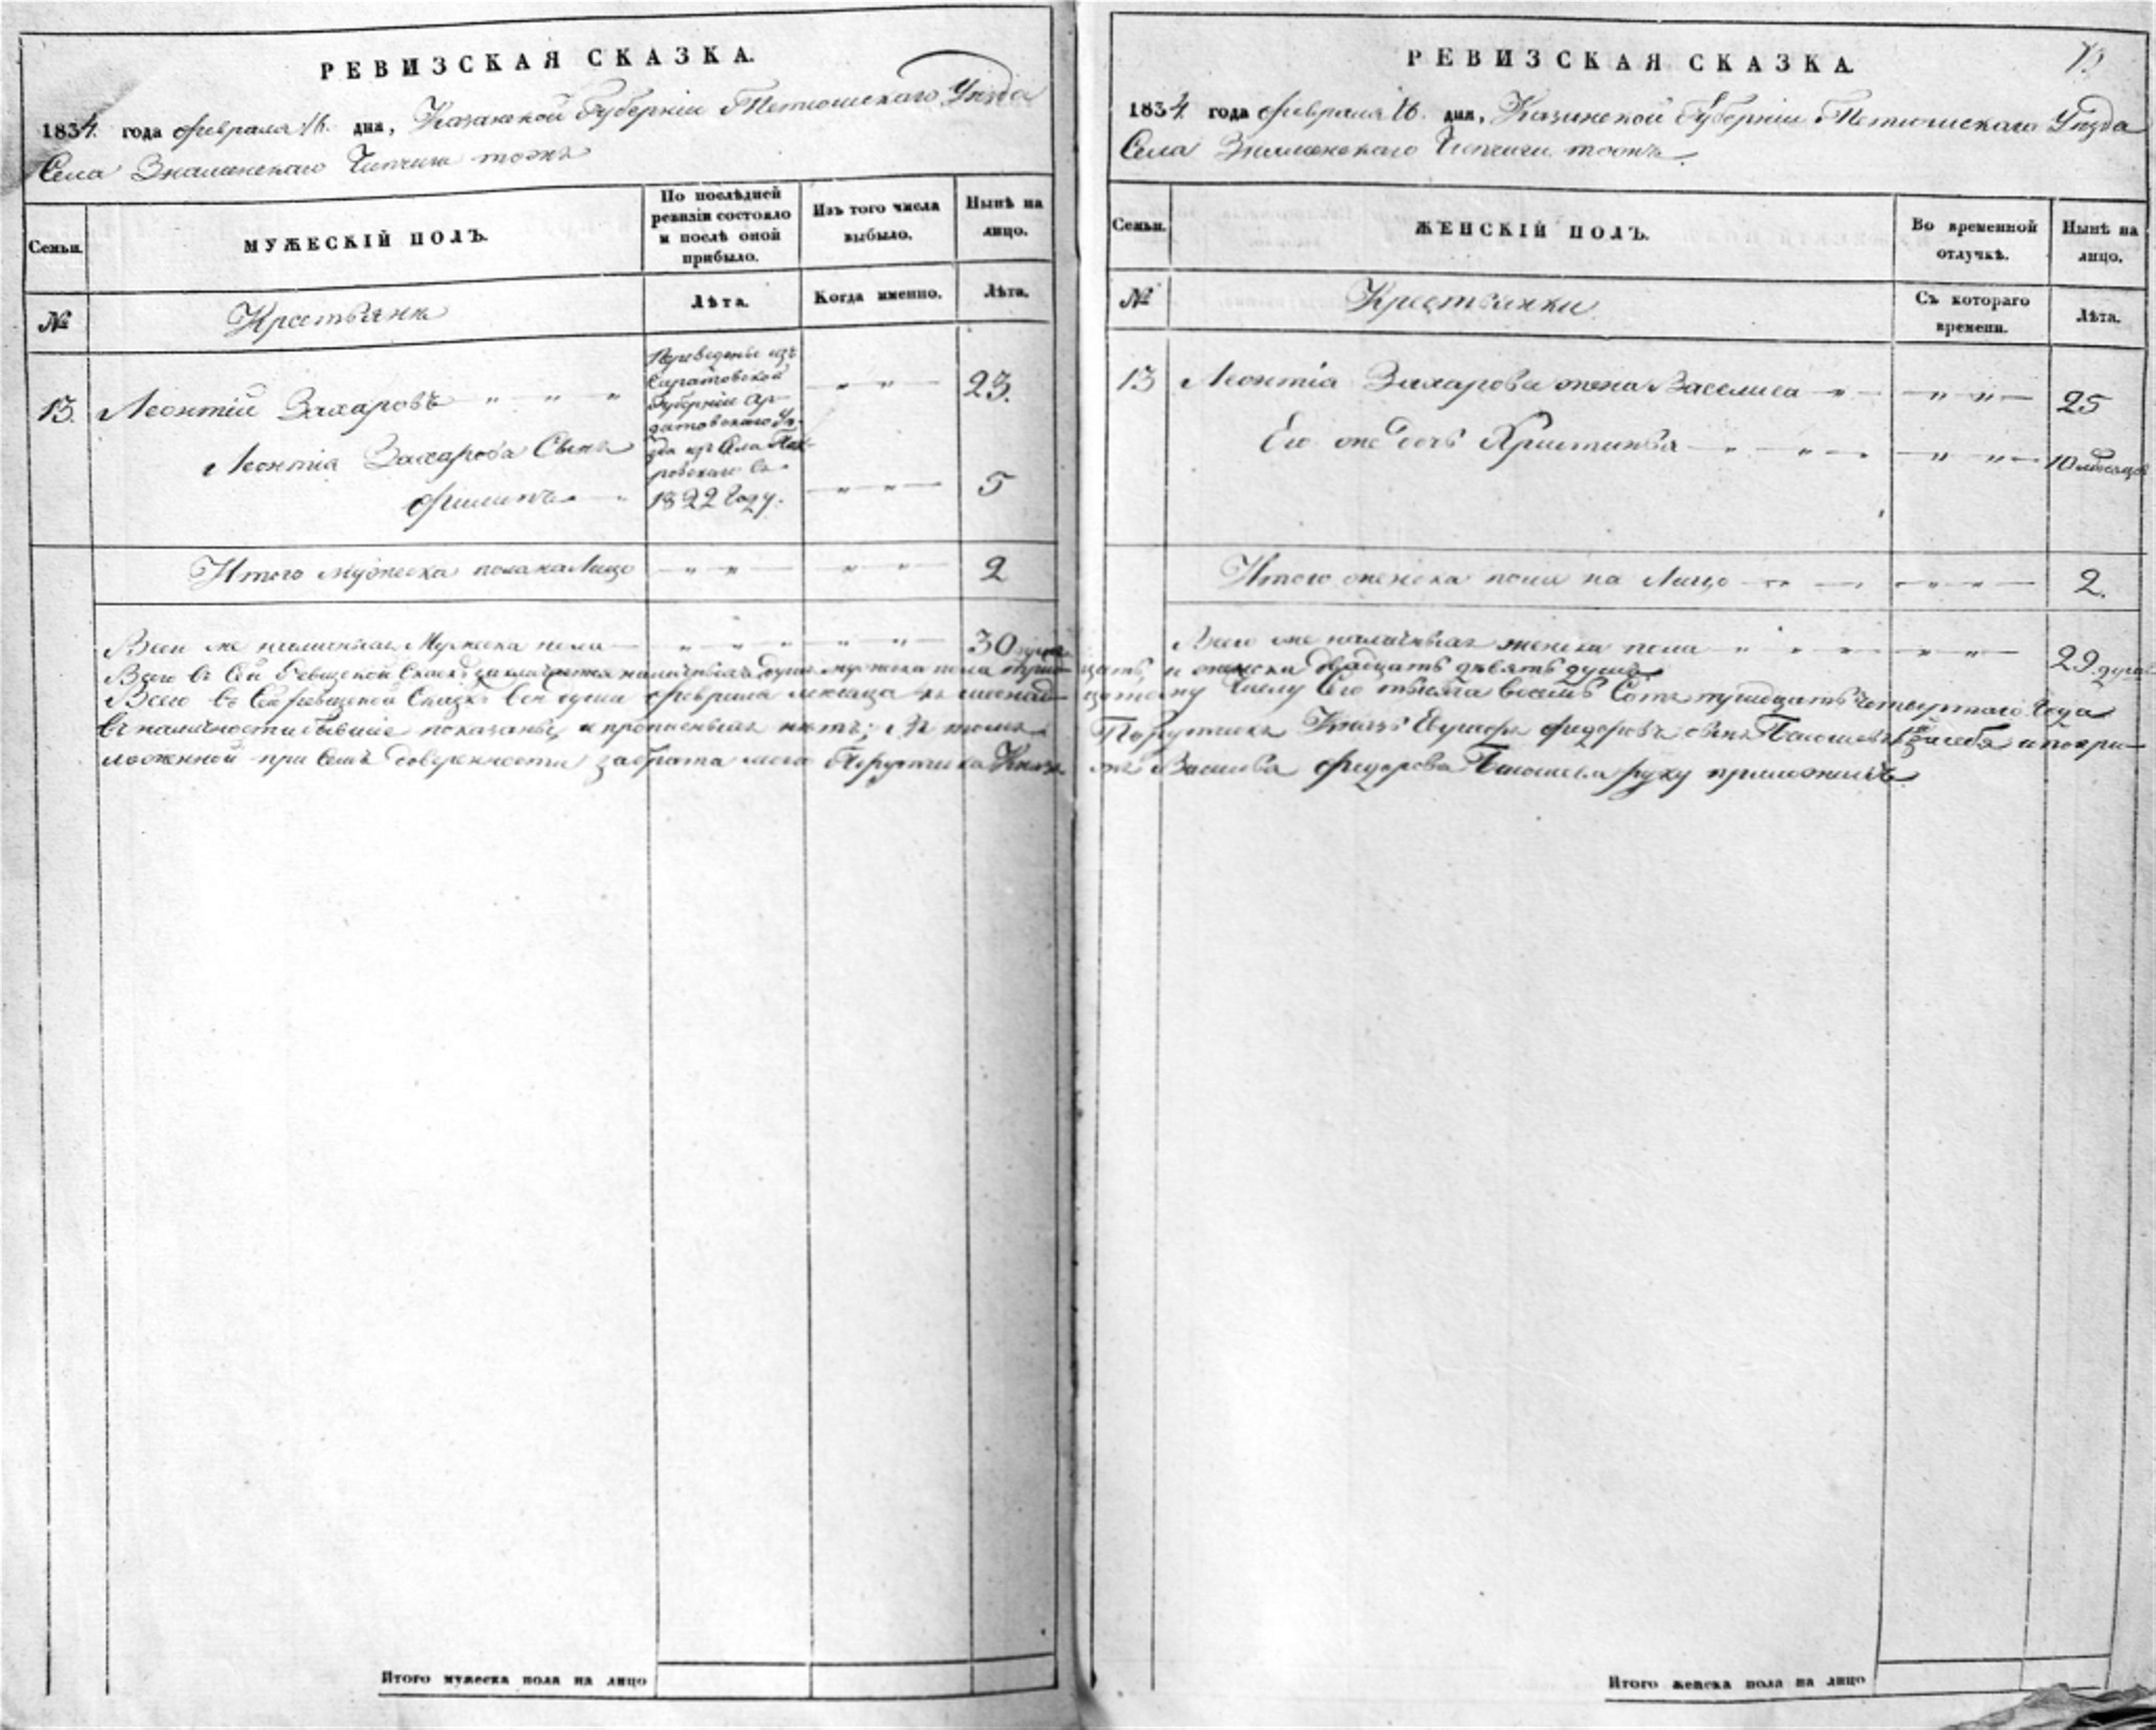 РЕВИЗСКАЯ СКАЗКА.
1834. года февраля 16. дня, Казанской Губерніи Тетюшскаго Уѣзда
Села Знаменскаго тожъ
Семьи.
МУЖЕСКІЙ ПОЛЪ.
По послѣдней
ревизіи состояло
и послѣ оной
прибыло.
Изъ того числа
выбыло.
Нынѣ на
лицо.
№
Крестьянъ
Лѣта.
Когда именно.
Лѣта.
13. Леонтій Захаровъ " " " — " " — 23.
Переведены изъ
Саратовской
Губерніи
Уѣ-
зда изъ Села Пок-
ровскаго въ
1822 Году.
Леонтія Захарова Сынъ
Филипъ — " — " " — 5
Итого мужеска пола на Лицо — " " — " " — 2
Всего же наличныхъ Мужеска пола — " " " " " — 30 душъ
Всего въ Сей Ревизской Сказкѣ заключается наличныхъ душъ мужеска пола трид-
Всего въ Сей ревизской Сказкѣ Февраля месяца къ шеснад-
въ наличности бывшіе показаны, и прописныхъ нѣтъ; въ томъ
ложенной при Семъ доверенности за брата моего Порутчика Князя
Итого мужеска пола на лицо
РЕВИЗСКАЯ СКАЗКА.
1834. года февраля 16. дня, Казанской Губерніи Тетюшскаго Уѣзда
Села Знаменскаго тожъ.
Семьи.
ЖЕНСКІЙ ПОЛЪ.
Во временной
отлучкѣ.
Нынѣ на
лицо.
№
Крестьянки
Съ котораго
времени.
Лѣта.
13 Леонтія Захарова жена Василиса — " — — " " — 25
Его же дочь Христинья — " — " — " — " " — 10 месяцов
Итого женска пола на Лицо — " — — " " — 2.
Всего же наличныхъ женска пола " " " " — " " — 29. душъ
цать, и женска двадцать девять душъ
цатому числу Сего тысяча восемь Сотъ тридцать четвертаго Года
Порутчикъ Князь Федоровъ сынъ за себя и по при-
Василья Федорова руку приложилъ
Итого женска пола на лицо